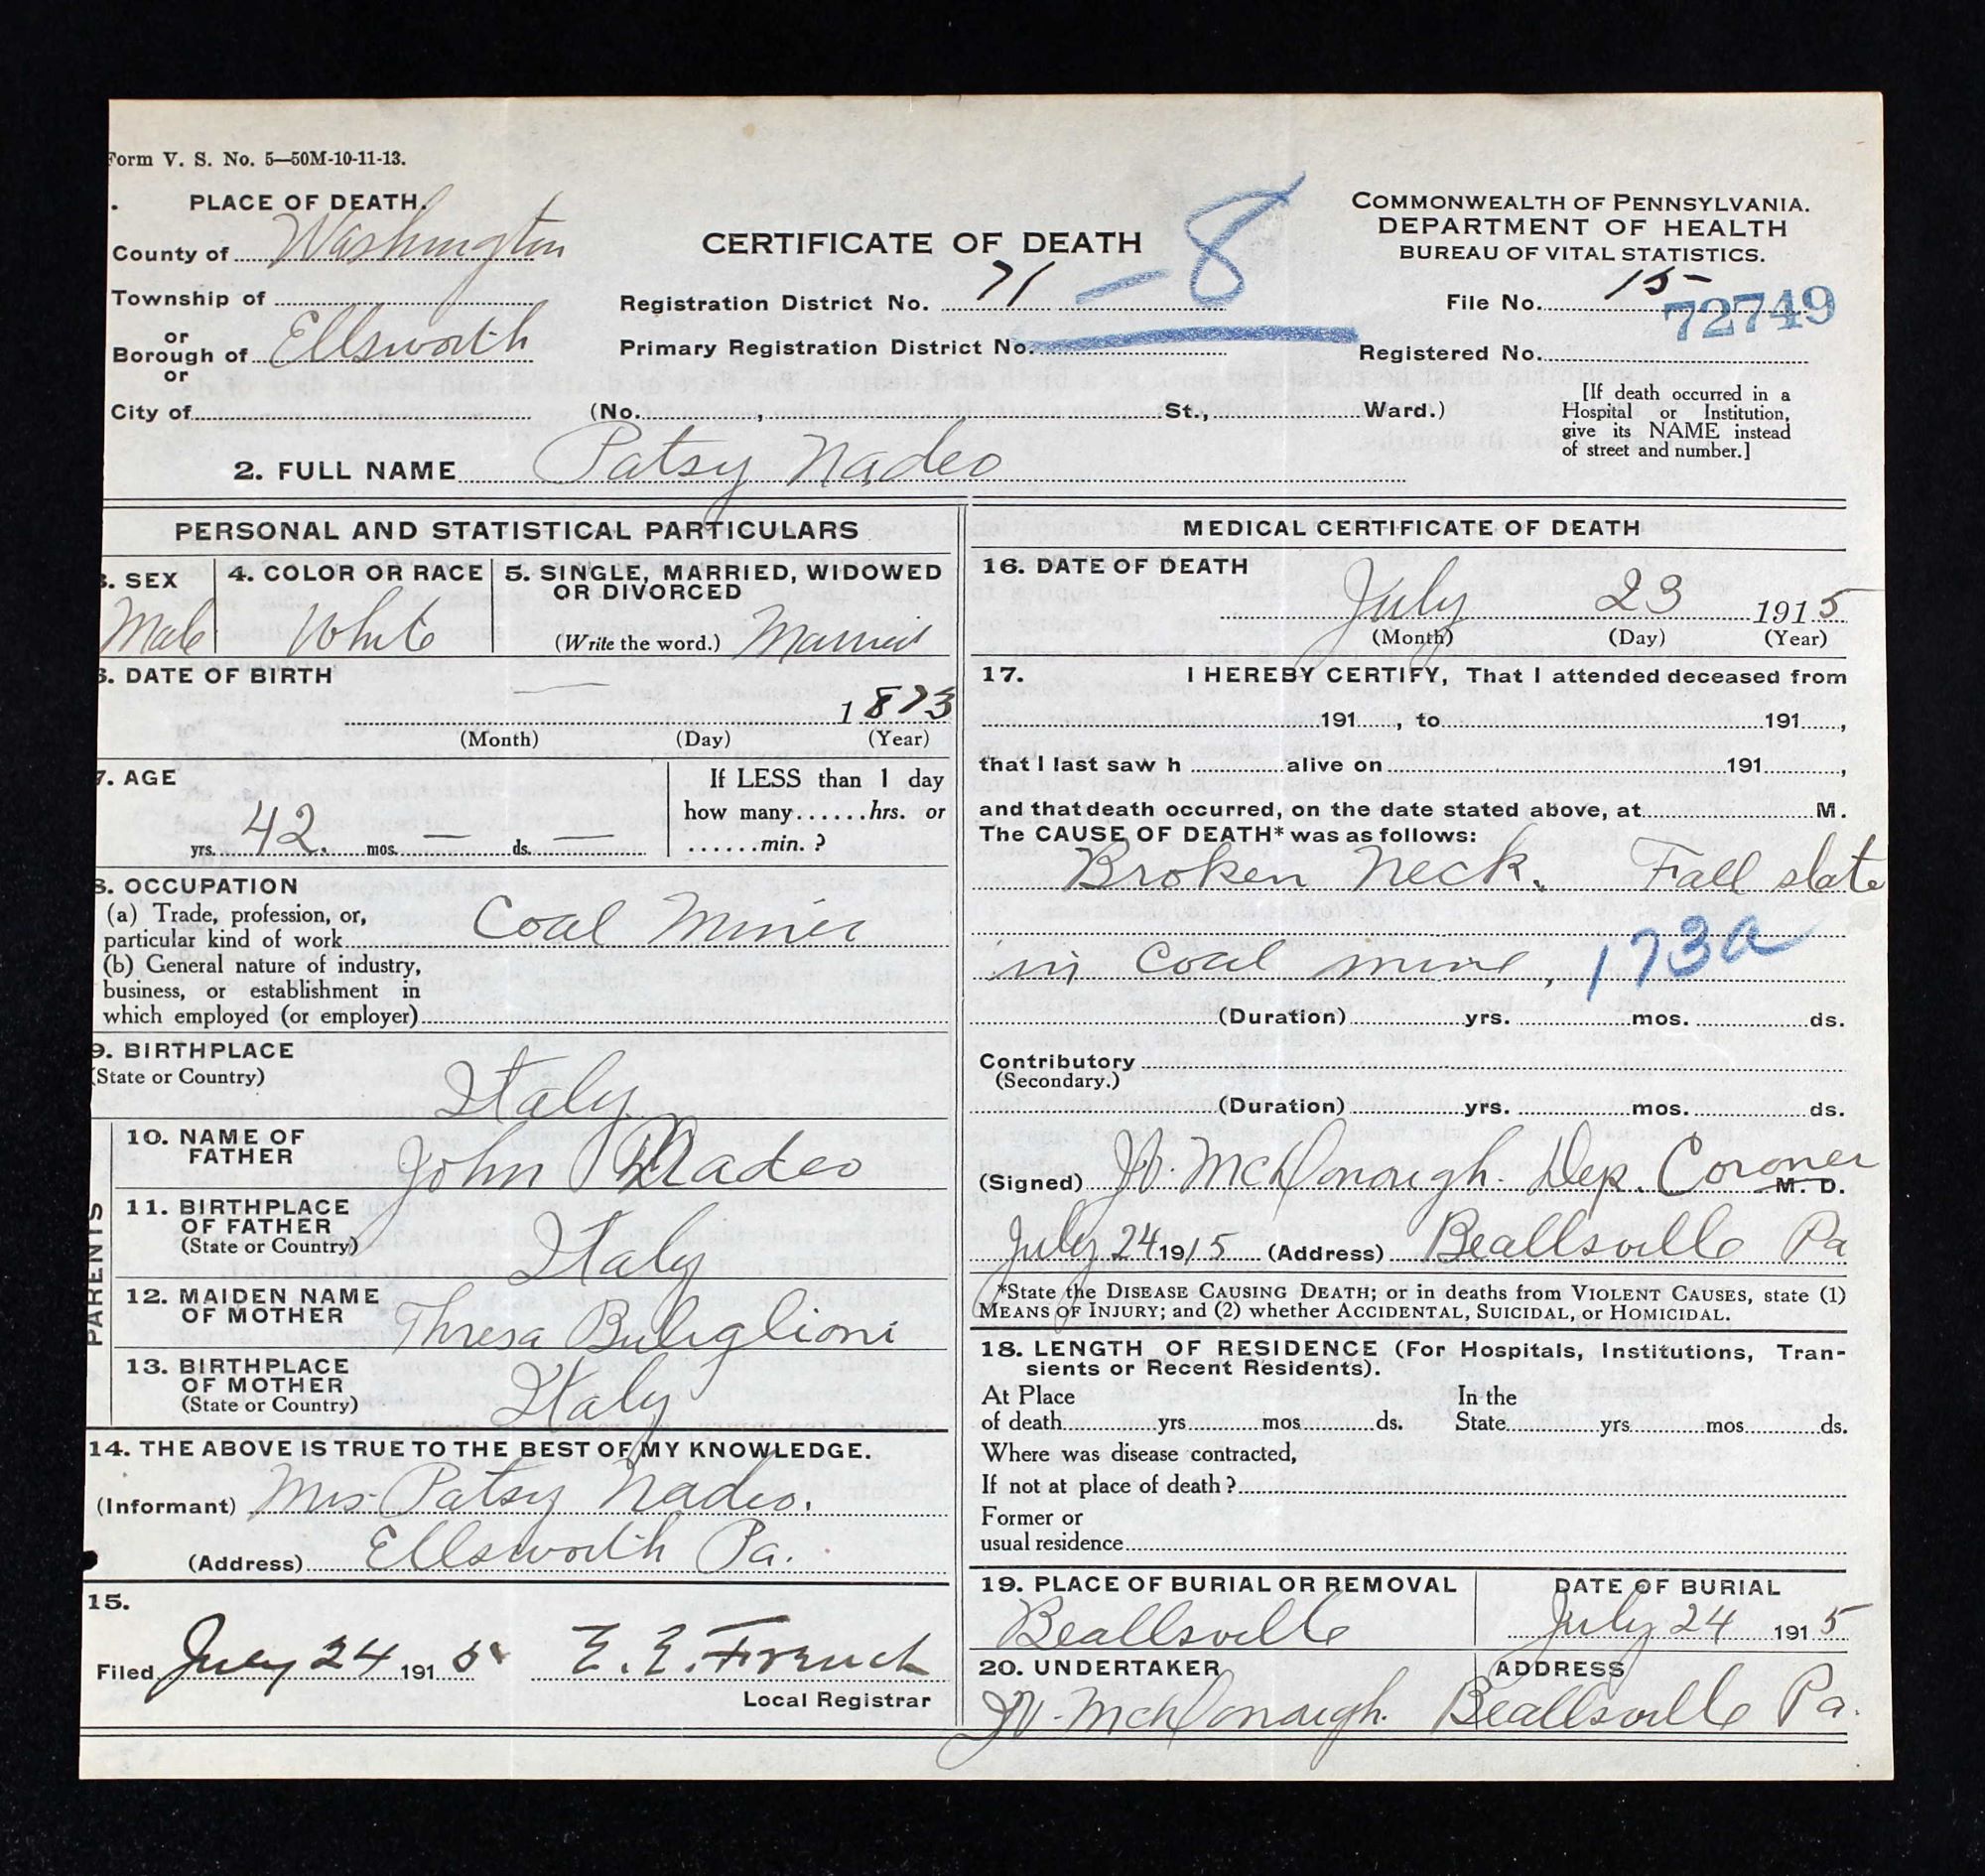 Form V. S. No. 5—50M-10-11-13.
PLACE OF DEATH.
County of Washington
Township of
or
Borough of Ellsworth
or
City of (No. , St., Ward.)
CERTIFICATE OF DEATH
Registration District No. 71 — 8
Primary Registration District No.
COMMONWEALTH OF PENNSYLVANIA.
DEPARTMENT OF HEALTH
BUREAU OF VITAL STATISTICS.
File No. 15
72749
Registered No.
[If death occurred in a
Hospital or Institution,
give its NAME instead
of street and number.]
2. FULL NAME Patsy Nadeo
PERSONAL AND STATISTICAL PARTICULARS
3. SEX
Male
4. COLOR OR RACE
White
5. SINGLE, MARRIED, WIDOWED
OR DIVORCED
(Write the word.) Married
6. DATE OF BIRTH
1873
(Month) (Day) (Year)
7. AGE
42 yrs. — mos. — ds.
If LESS than 1 day
how many......hrs. or
......min. ?
8. OCCUPATION
(a) Trade, profession, or,
particular kind of work Coal Miner
(b) General nature of industry,
business, or establishment in
which employed (or employer)
9. BIRTHPLACE
(State or Country)
Italy
PARENTS
10. NAME OF
FATHER
John Nadeo
11. BIRTHPLACE
OF FATHER
(State or Country)
Italy
12. MAIDEN NAME
OF MOTHER
Thresa Buliglioni
13. BIRTHPLACE
OF MOTHER
(State or Country)
Italy
14. THE ABOVE IS TRUE TO THE BEST OF MY KNOWLEDGE.
(Informant) Mrs Patsy Nadeo.
(Address) Ellsworth Pa.
15.
Filed July 24 1915 E. E. French
Local Registrar
MEDICAL CERTIFICATE OF DEATH
16. DATE OF DEATH
July 23 1915
(Month) (Day) (Year)
17. I HEREBY CERTIFY, That I attended deceased from
191 , to 191 ,
that I last saw h alive on 191 ,
and that death occurred, on the date stated above, at M.
The CAUSE OF DEATH* was as follows:
Broken Neck. Fall slate
in Coal mine, 173a
(Duration) yrs. mos. ds.
Contributory
(Secondary.)
(Duration) yrs. mos. ds.
(Signed) McDonough. Dep. Coroner
M. D.
July 24 1915 (Address) Beallsville Pa
*State the DISEASE CAUSING DEATH; or in deaths from VIOLENT CAUSES, state (1)
MEANS OF INJURY; and (2) whether ACCIDENTAL, SUICIDAL, or HOMICIDAL.
18. LENGTH OF RESIDENCE (For Hospitals, Institutions, Tran-
sients or Recent Residents).
At Place In the
of death yrs. mos. ds. State yrs. mos. ds.
Where was disease contracted,
If not at place of death ?
Former or
usual residence
19. PLACE OF BURIAL OR REMOVAL
Beallsville
DATE OF BURIAL
July 24 1915
20. UNDERTAKER
McDonough.
ADDRESS
Beallsville Pa.